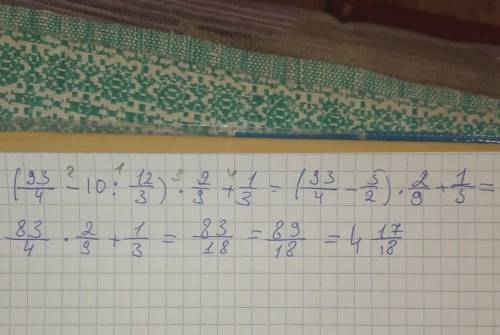 (93/4 ² - 10 :¹ 12/3) ·³ 2/9 +⁴ 1/3 = (93/4 - 5/2) · 2/9 + 1/3 =
83/4 · 2/9 + 1/3 = 83/18 = 89/18 = 4 17/18